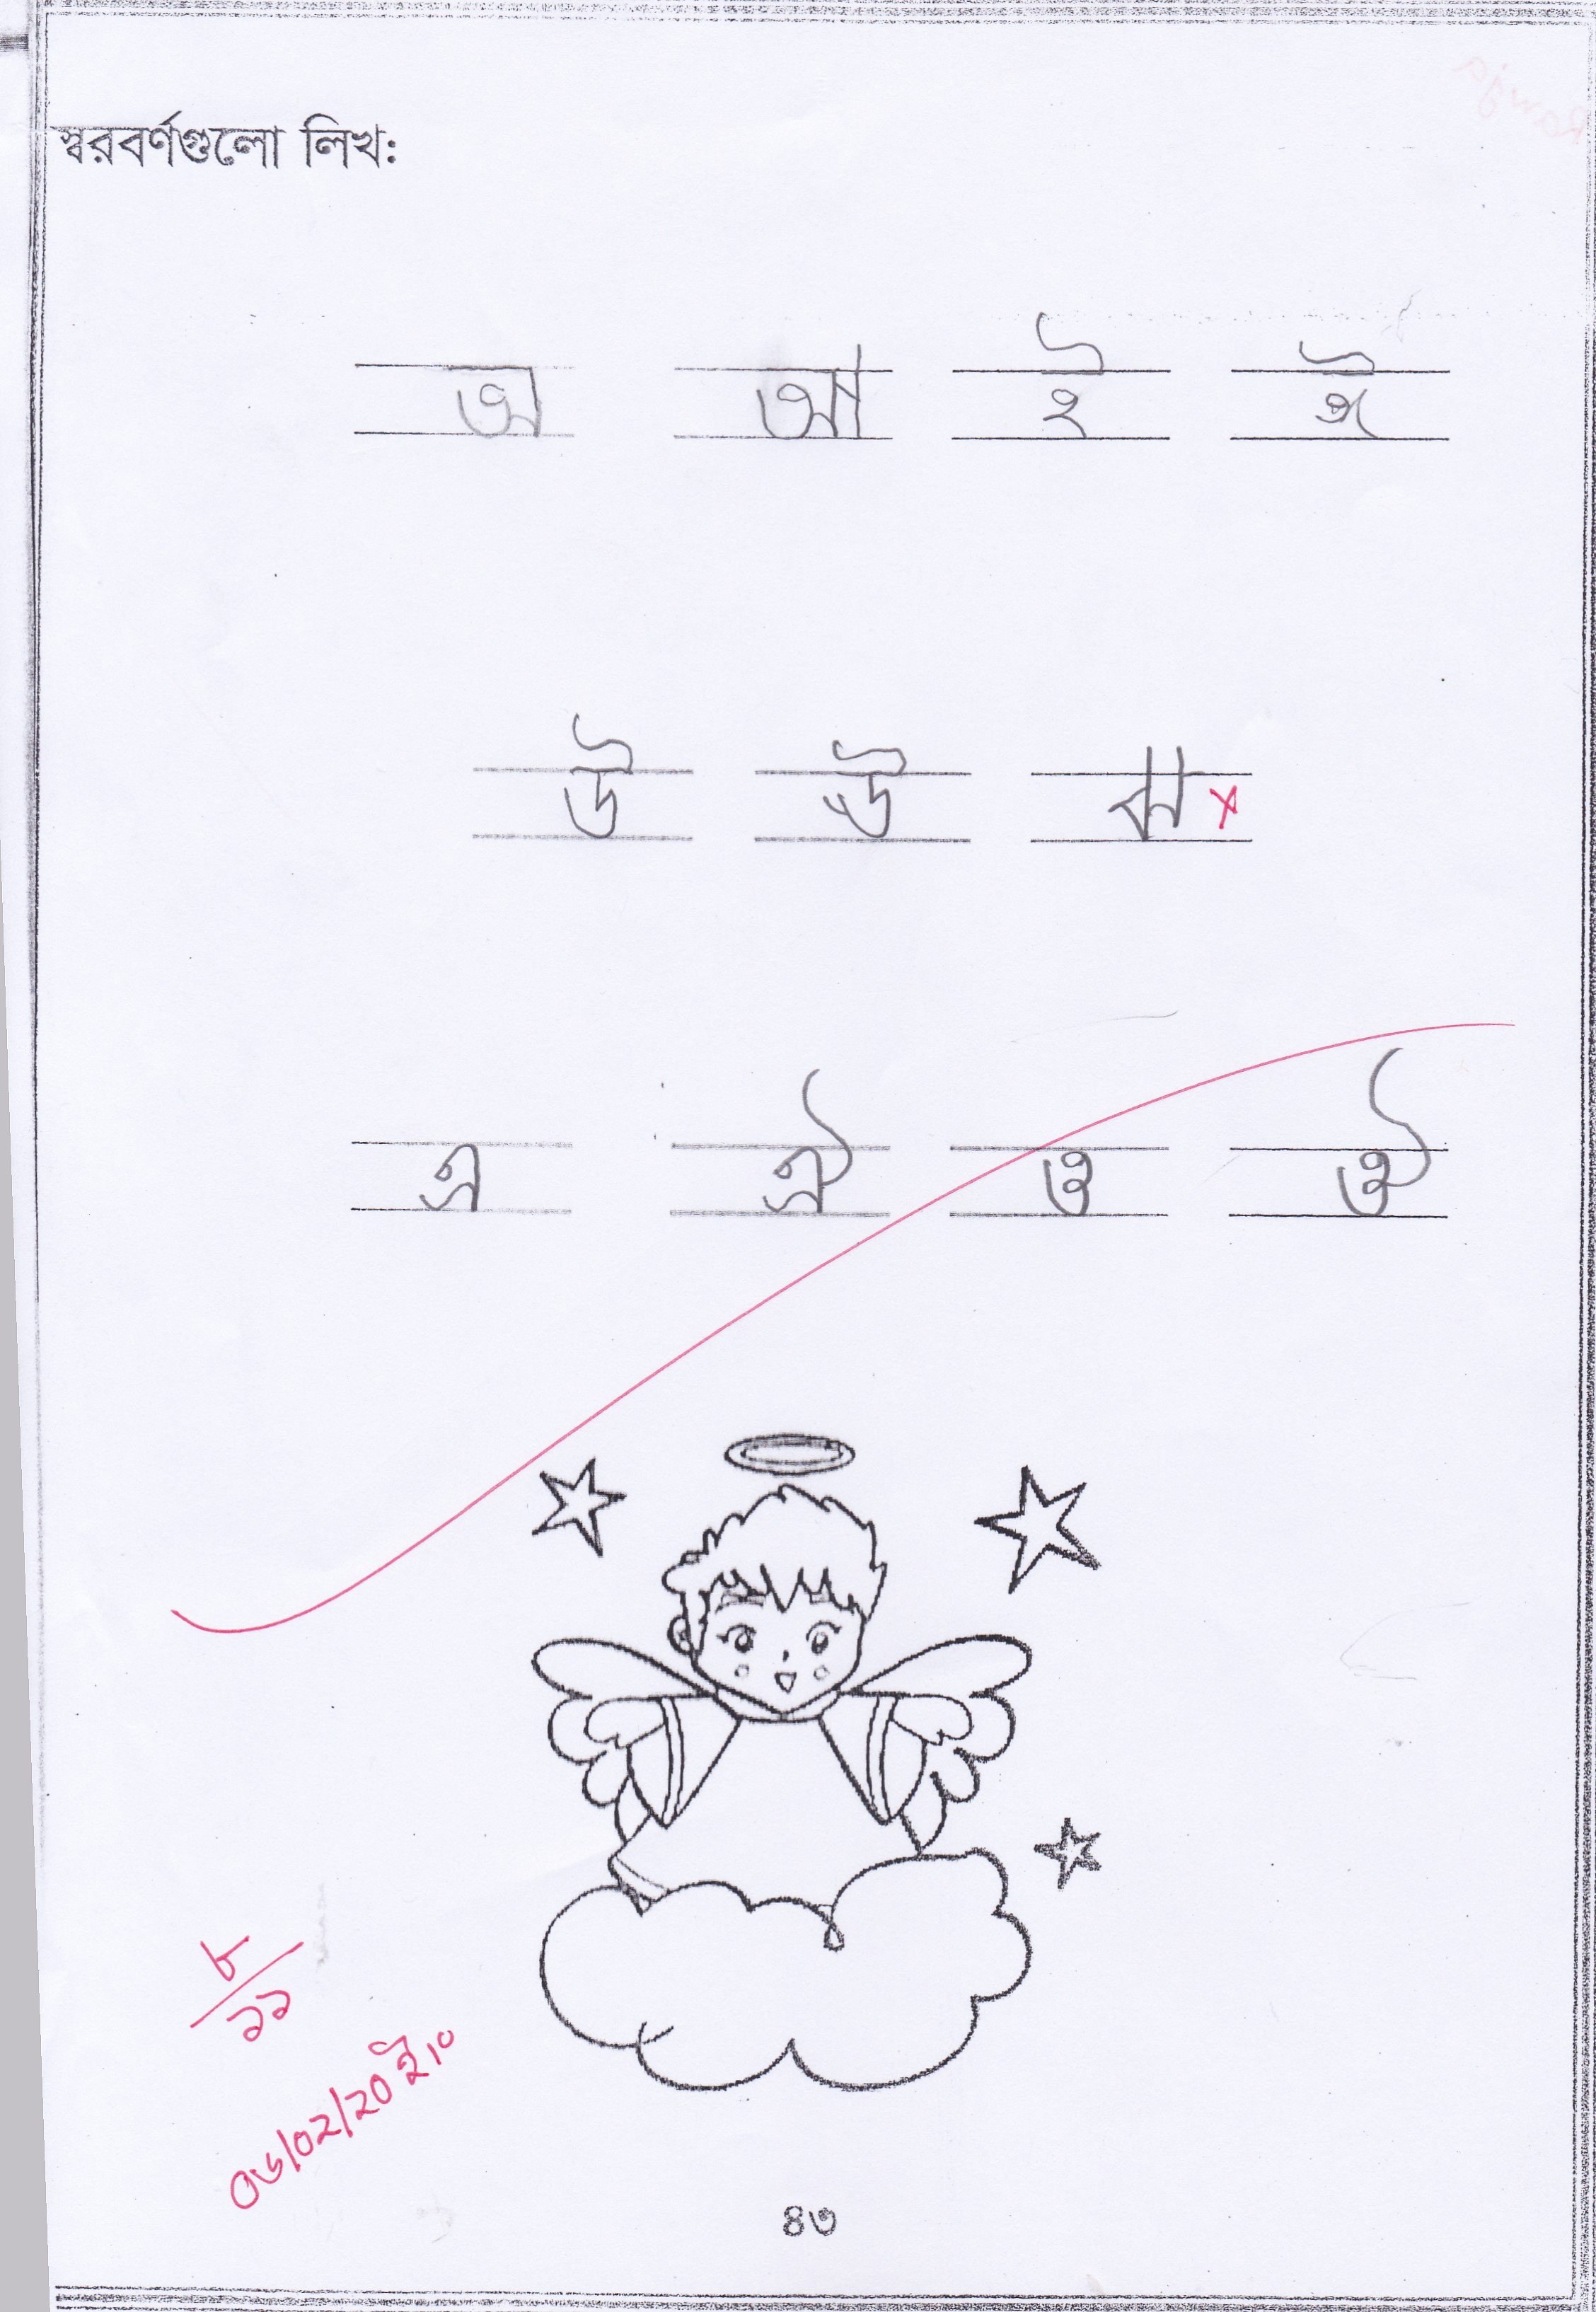 স্বরবর্ণগুলো লিখ:
অ আ ই ঈ
উ ঊ ঋ x
এ ঐ ও ঔ
৮/১১
০৬/০২/২০
৪৩